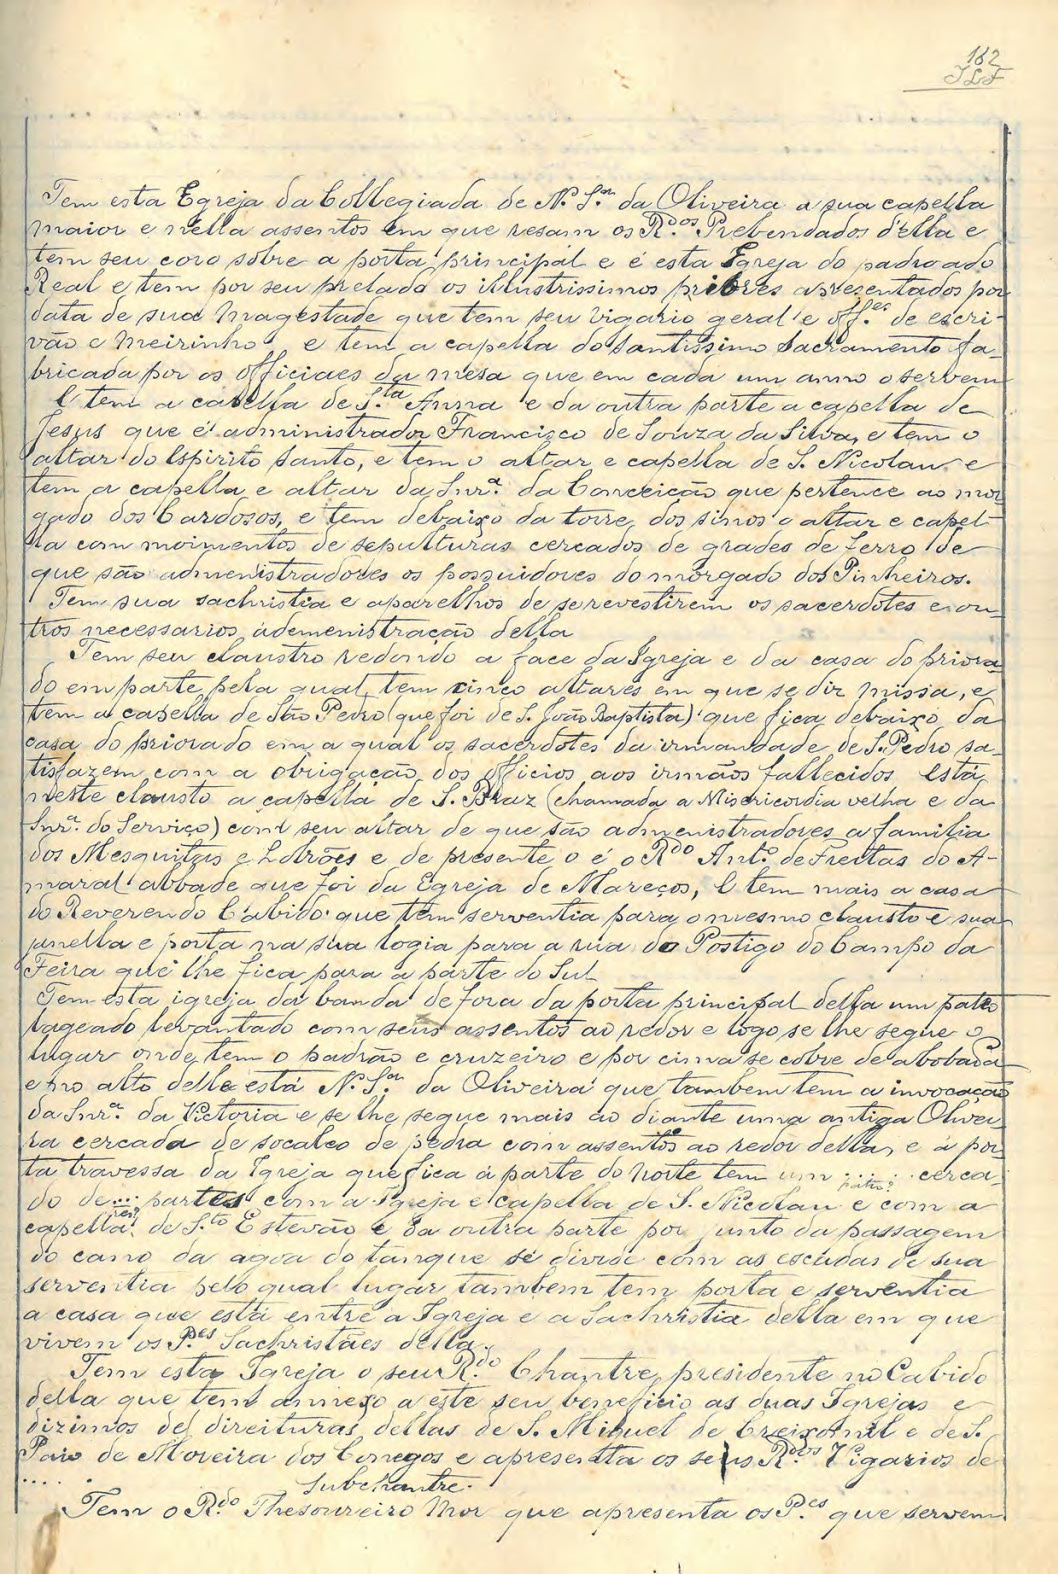 182
JLF
Tem esta Egreja da Collegiada de N.ª S.ra da Oliveira a sua capella
maior e nella assentos em que resam os R.dos Prebendados d'ella e
tem seu coro sobre a porta principal e é esta Igreja do padroado
Real e tem por seu prelado os illustrissimos priores apresentados por
data de sua Magestade que tem seu vigario geral e off.es de escri-
vão e Meirinho, e tem a capella do Santissimo Sacramento fa-
bricada por os officiaes da mesa que em cada um anno o servem
E tem a capella de S.ta Anna e da outra parte a capella de
Jesus que é administrador Francisco de Souza da Silva, e tem o
altar do Espirito Santo, e tem o altar e capella de S. Nicolau e
tem a capella e altar da Snr.ª da Conceição que pertence ao mor
gado dos Cardosos, e tem debaixo da torre dos sinos o altar e capel-
la com moimentos de sepulturas cercados de grades de ferro de
que são admenistradores os possuidores do morgado dos Pinheiros.
Tem sua sachristia e aparelhos de se revestirem os sacerdotes e ou-
tros necessarios ádemenistração della
Tem seu claustro redondo a face da Igreja e da casa do priora-
do em parte, pela qual tem cinco altares em que se diz missa, e
tem a capella de São Pedro (que foi de S. João Baptista) que fica debaixo da
casa do priorado em a qual os sacerdotes da irmandade de S. Pedro sa-
tisfazem com a obrigação dos officios aos irmãos fallecidos está
neste clausto a capella de S. Braz (chamada a Misericordia velha e da
Snr.ª do Serviço) com seu altar de que são admenistradores a familia
dos Mesquitas e Lobrões e de presente o é o R.do Ant.o de Freitas do A-
maral abbade que foi da Egreja de Mareços, E tem mais a casa
do Reverendo Cabido que tem serventia para o mesmo clausto e sua
janella e porta na sua logia para a rua do Postigo do Campo da
Feira que lhe fica para a parte do Sul
Tem esta igreja da banda de fora da porta principal della um pateo
lageado levantado com seus assentos ao redor e logo se lhe segue o
lugar onde tem o padrão e cruzeiro e por cima se cobre de abobada
e no alto della está N.ª S.ra da Oliveira que tambem tem a invocação
da Snr.ª da Victoria e se lhe segue mais ao diante uma antiga Olivei
ra cercada de socalco de pedra com assentos ao redor della, e á por
ta travessa da Igreja que fica á parte do Norte tem um .... cerca-
pateo?
do de ... partes com a Igreja e capella de S. Nicolau e com a
capella de S.to Estevão e da outra parte por junto da passagem
do cano da agoa do tanque se divise com as escadas de sua
serventia pelo qual lugar tambem tem porta e serventia
a casa que está entre a Igreja e a Sachristia della em que
vivem os P.es Sachristães della.
Tem esta Igreja o seu R.do Chantre, presidente no Cabido
della que tem annexo a este seu beneficio as duas Igrejas e
dizimos de direituras dellas de S. Miguel de Creixomil e de S.
Paio de Moreira dos Conegos e apresenta os seus R.dos Vigarios de
.... Subchantre.
Tem o R.do Thesoureiro Mor que apresenta os P.es que servem